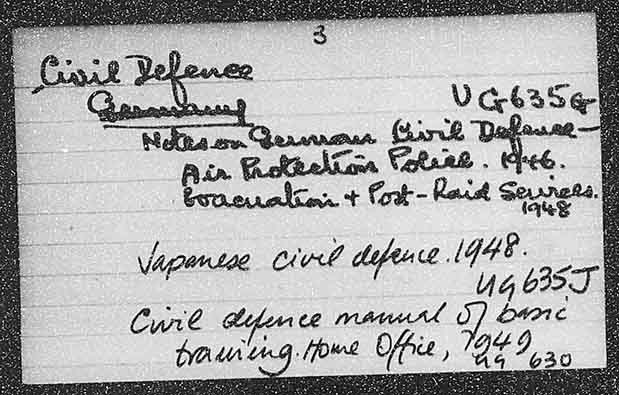 3
Civil Defence
Germany
UG635G
Notes on German Civil Defence —
Air Protection Police. 1946.
Evacuation + Post-Raid Services.
1948
Japanese civil defence. 1948.
UG635J
Civil defence manual of basic
training. Home Office, 1949
UG 630